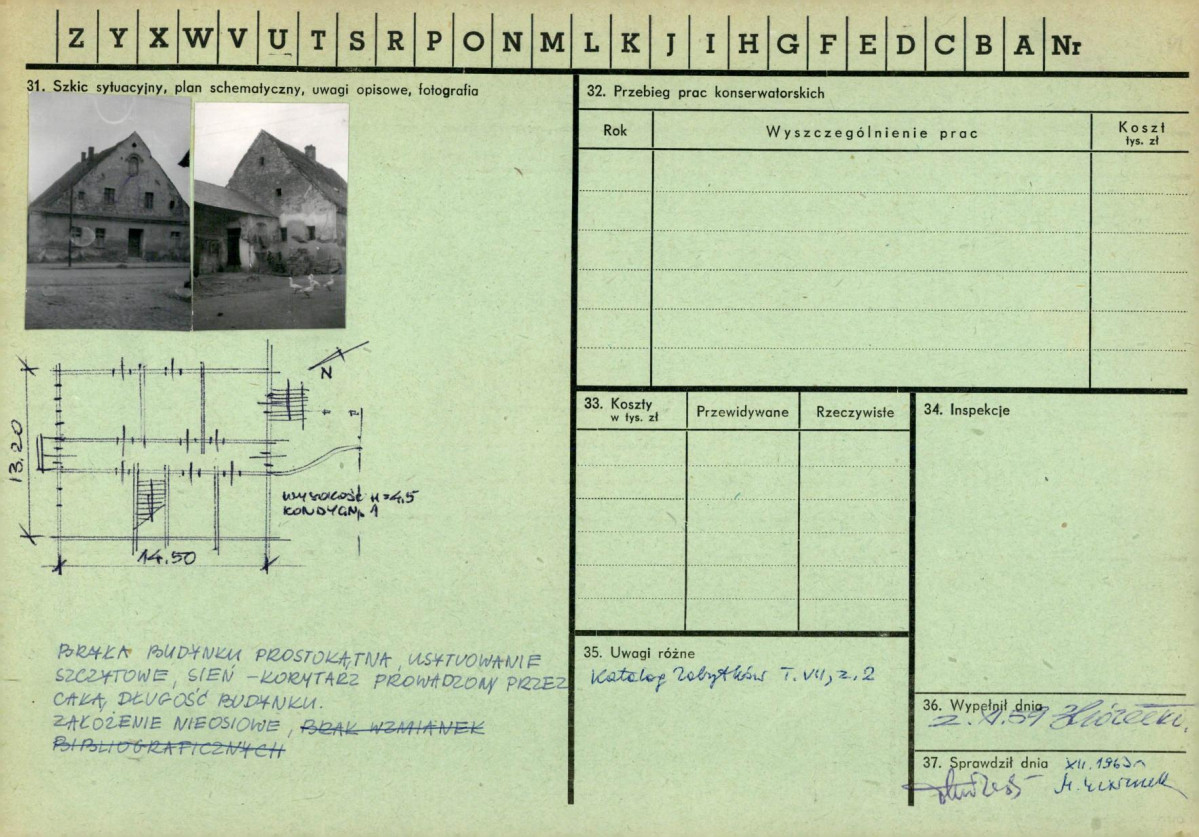 Z Y X W V U T S R P O N M L K J I H G F E D C B A Nr
31. Szkic sytuacyjny, plan schematyczny, uwagi opisowe, fotografia
N
13.20
WYSOKOŚĆ H=4,5
KONDYGN. 1
14.50
BRYŁA BUDYNKU PROSTOKĄTNA, USYTUOWANIE
SZCZYTOWE, SIEŃ - KORYTARZ PROWADZONY PRZEZ
CAŁĄ DŁUGOŚĆ BUDYNKU.
ZAŁOŻENIE NIEOSIOWE, BRAK WZMIANEK
BIBLIOGRAFICZNYCH
32. Przebieg prac konserwatorskich
Rok Wyszczególnienie prac Koszt
tys. zł
33. Koszty
w tys. zł Przewidywane Rzeczywiste
34. Inspekcje
35. Uwagi różne
Katalog Zabytków T. VII, z. 2
36. Wypełnił dnia
2. XI. 59
37. Sprawdził dnia XII. 1963